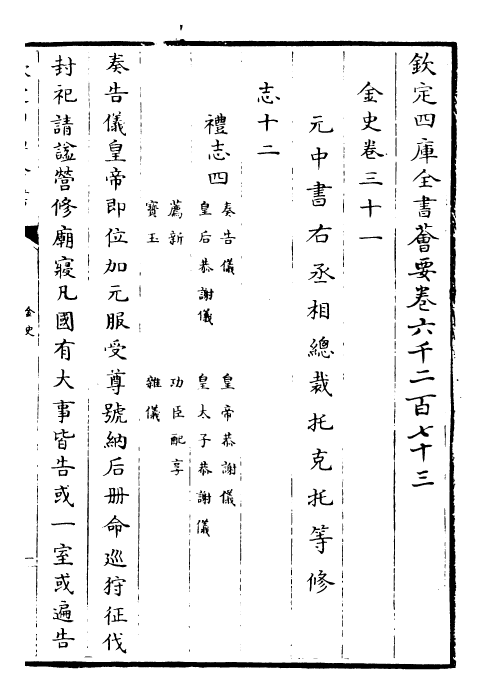 欽定四庫全書薈要卷六千二百七十三
金史卷三十一
元中書右丞相總裁托克托等修
志十二
禮志四
奏告儀 皇帝恭謝儀
皇后恭謝儀 皇太子恭謝儀
薦新 功臣配享
寶玉 雜儀
奏告儀皇帝即位加元服受尊號納后册命巡狩征伐
封祀請諡營修廟寢凡國有大事皆告或一室或遍告
金史